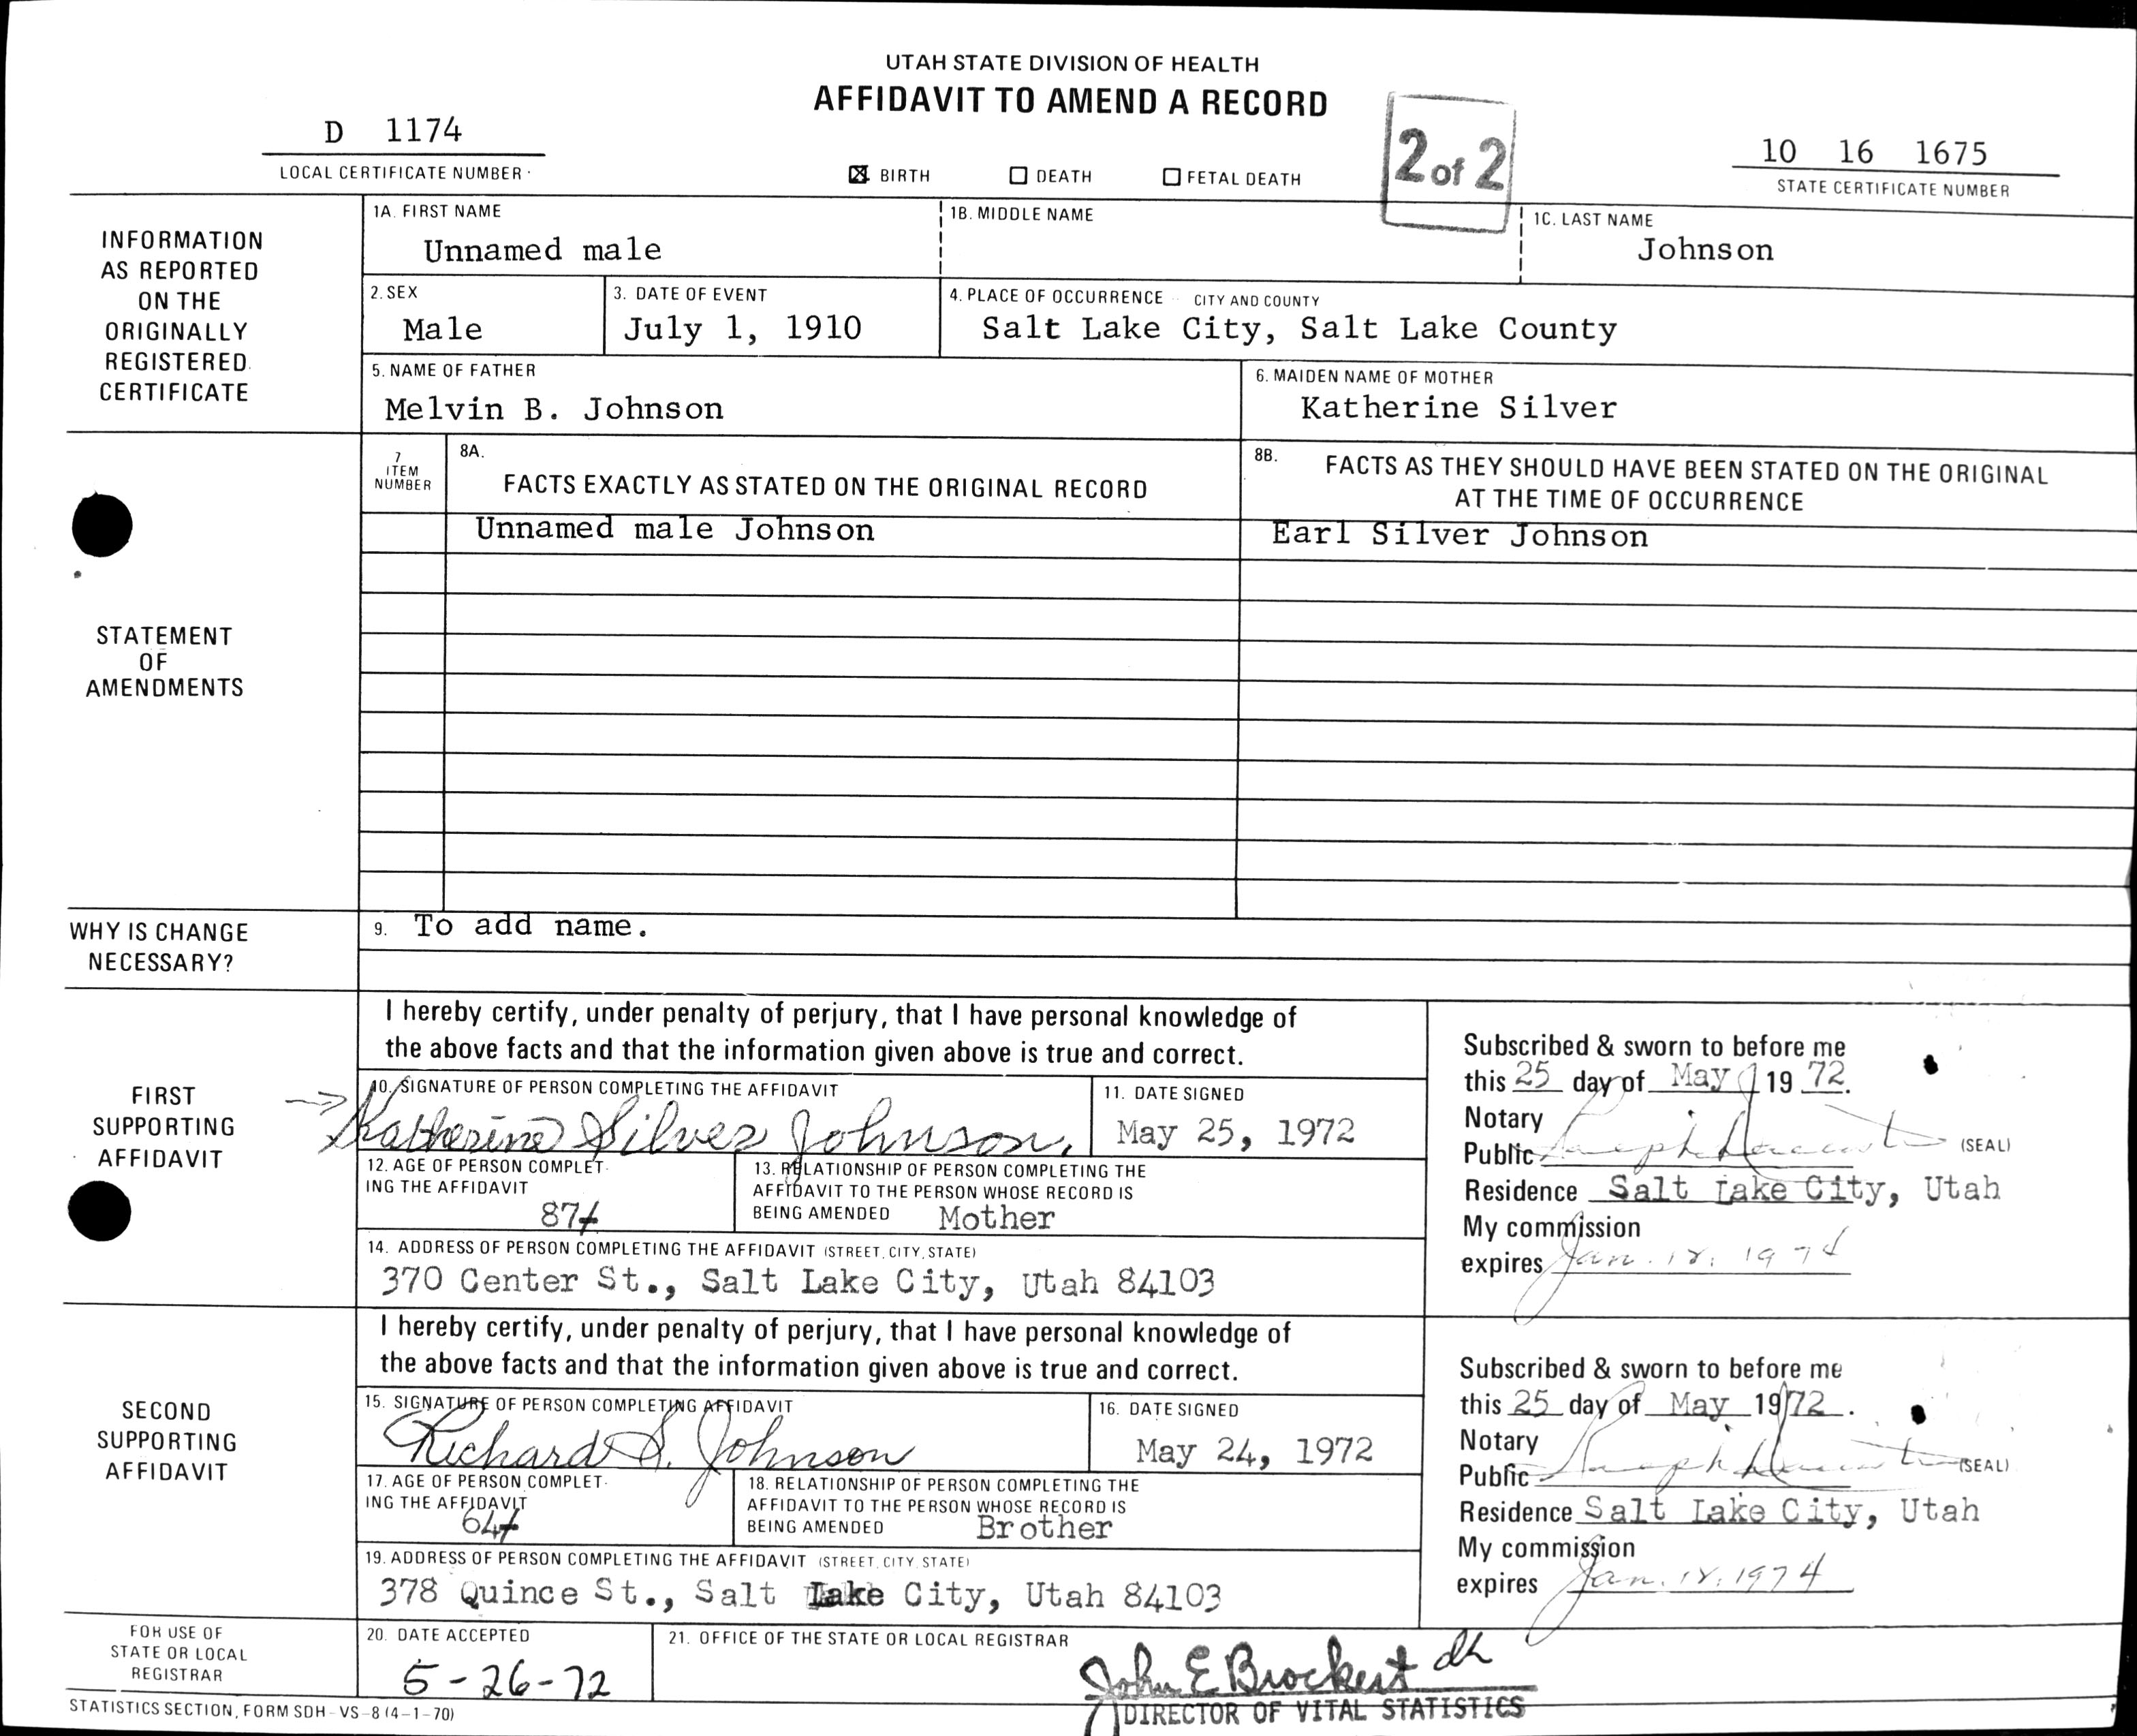 UTAH STATE DIVISION OF HEALTH
AFFIDAVIT TO AMEND A RECORD
2 of 2
D 1174
LOCAL CERTIFICATE NUMBER
BIRTH DEATH FETAL DEATH
10 16 1675
STATE CERTIFICATE NUMBER
INFORMATION AS REPORTED ON THE ORIGINALLY REGISTERED CERTIFICATE
1A. FIRST NAME
Unnamed male
1B. MIDDLE NAME
1C. LAST NAME
Johnson
2. SEX
Male
3. DATE OF EVENT
July 1, 1910
4. PLACE OF OCCURRENCE CITY AND COUNTY
Salt Lake City, Salt Lake County
5. NAME OF FATHER
Melvin B. Johnson
6. MAIDEN NAME OF MOTHER
Katherine Silver
STATEMENT
OF
AMENDMENTS
7
ITEM
NUMBER
8A.
FACTS EXACTLY AS STATED ON THE ORIGINAL RECORD
8B. FACTS AS THEY SHOULD HAVE BEEN STATED ON THE ORIGINAL
AT THE TIME OF OCCURRENCE
Unnamed male Johnson
Earl Silver Johnson
WHY IS CHANGE
NECESSARY?
9. To add name.
FIRST
SUPPORTING
AFFIDAVIT
I hereby certify, under penalty of perjury, that I have personal knowledge of
the above facts and that the information given above is true and correct.
10. SIGNATURE OF PERSON COMPLETING THE AFFIDAVIT
Katherine Silver Johnson.
11. DATE SIGNED
May 25, 1972
12. AGE OF PERSON COMPLET-
ING THE AFFIDAVIT
87
13. RELATIONSHIP OF PERSON COMPLETING THE
AFFIDAVIT TO THE PERSON WHOSE RECORD IS
BEING AMENDED Mother
14. ADDRESS OF PERSON COMPLETING THE AFFIDAVIT (STREET, CITY, STATE)
370 Center St., Salt Lake City, Utah 84103
Subscribed & sworn to before me
this 25 day of May 1972.
Notary
Public (SEAL)
Residence Salt Lake City, Utah
My commission
expires Jan. 18, 1974
SECOND
SUPPORTING
AFFIDAVIT
I hereby certify, under penalty of perjury, that I have personal knowledge of
the above facts and that the information given above is true and correct.
15. SIGNATURE OF PERSON COMPLETING AFFIDAVIT
Richard S. Johnson
16. DATE SIGNED
May 24, 1972
17. AGE OF PERSON COMPLET-
ING THE AFFIDAVIT
64
18. RELATIONSHIP OF PERSON COMPLETING THE
AFFIDAVIT TO THE PERSON WHOSE RECORD IS
BEING AMENDED Brother
19. ADDRESS OF PERSON COMPLETING THE AFFIDAVIT (STREET, CITY, STATE)
378 Quince St., Salt Lake City, Utah 84103
Subscribed & sworn to before me
this 25 day of May 1972.
Notary
Public (SEAL)
Residence Salt Lake City, Utah
My commission
expires Jan. 18, 1974
FOR USE OF
STATE OR LOCAL
REGISTRAR
20. DATE ACCEPTED
5-26-72
21. OFFICE OF THE STATE OR LOCAL REGISTRAR
John E Brockert dh
DIRECTOR OF VITAL STATISTICS
STATISTICS SECTION, FORM SDH-VS-8 (4-1-70)